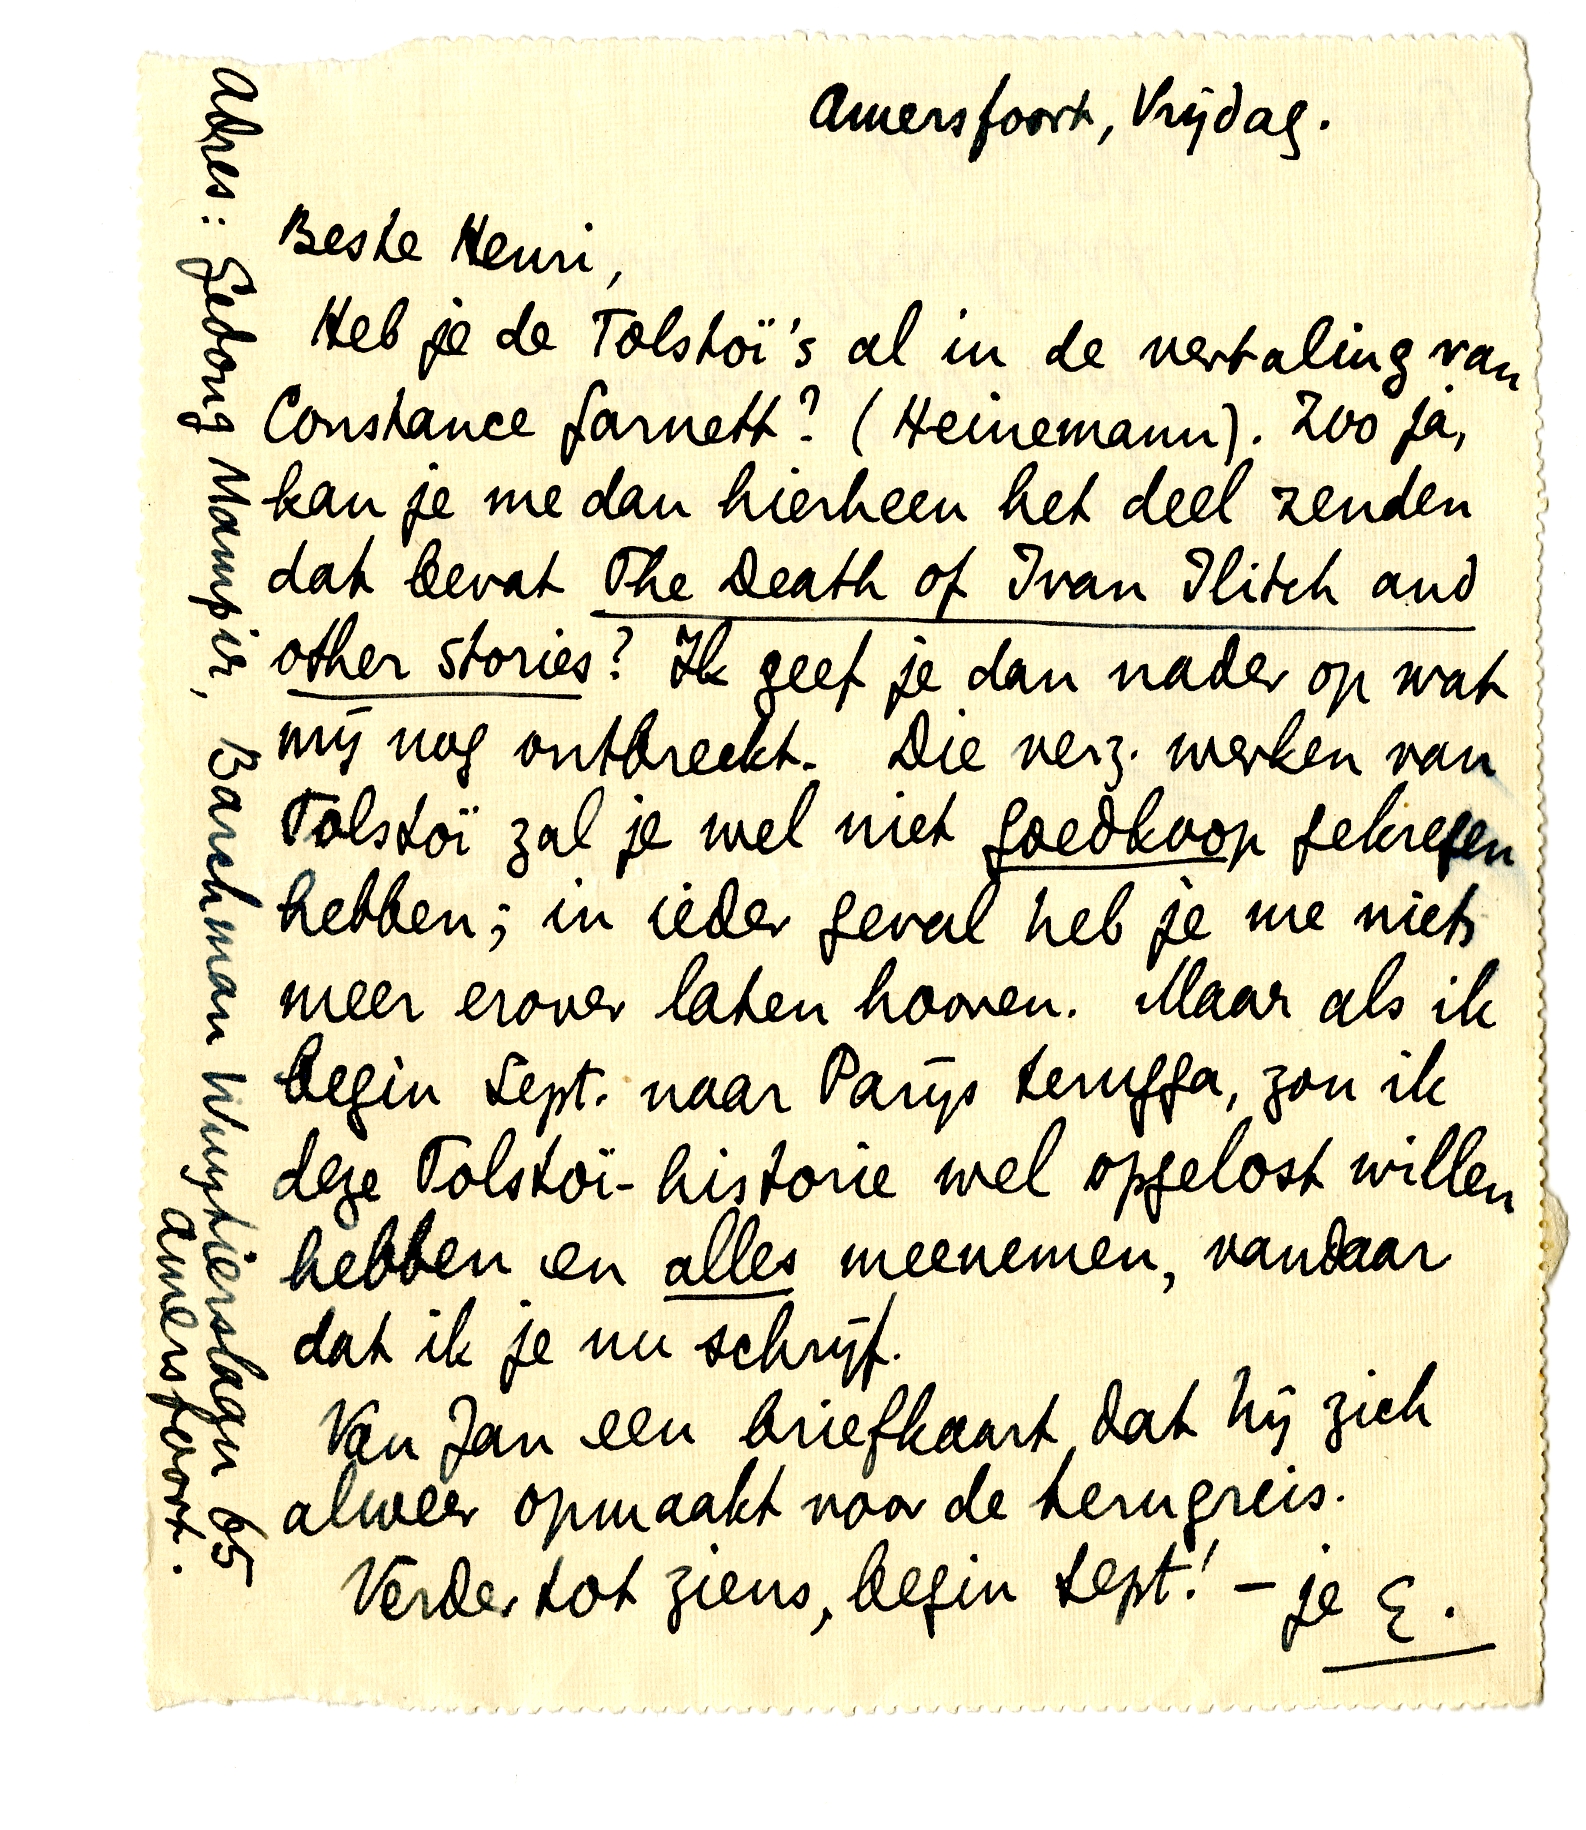 Amersfoort, Vrijdag.
Beste Henri,
Heb je de Tolstoï's al in de vertaling van
Constance Garnett? (Heinemann). Zoo ja,
kan je me dan hierheen het deel zenden
dat bevat The Death of Ivan Ilitch and
other stories? Ik geef je dan nader op wat
mij nog ontbreekt. Die verz. werken van
Tolstoï zal je wel niet goedkoop gekregen
hebben; in ieder geval heb je me niets
meer erover laten hooren. Maar als ik
begin Sept. naar Parijs terugga, zou ik
deze Tolstoï-historie wel opgelost willen
hebben en alles meenemen, vandaar
dat ik je nu schrijf.
Van Jan een briefkaart, dat hij zich
alweer opmaakt voor de terugreis.
Verder tot ziens, begin Sept.! – je E.
Adres: Gedong Mampir, Barchman Wuytierslaan 65
Amersfoort.